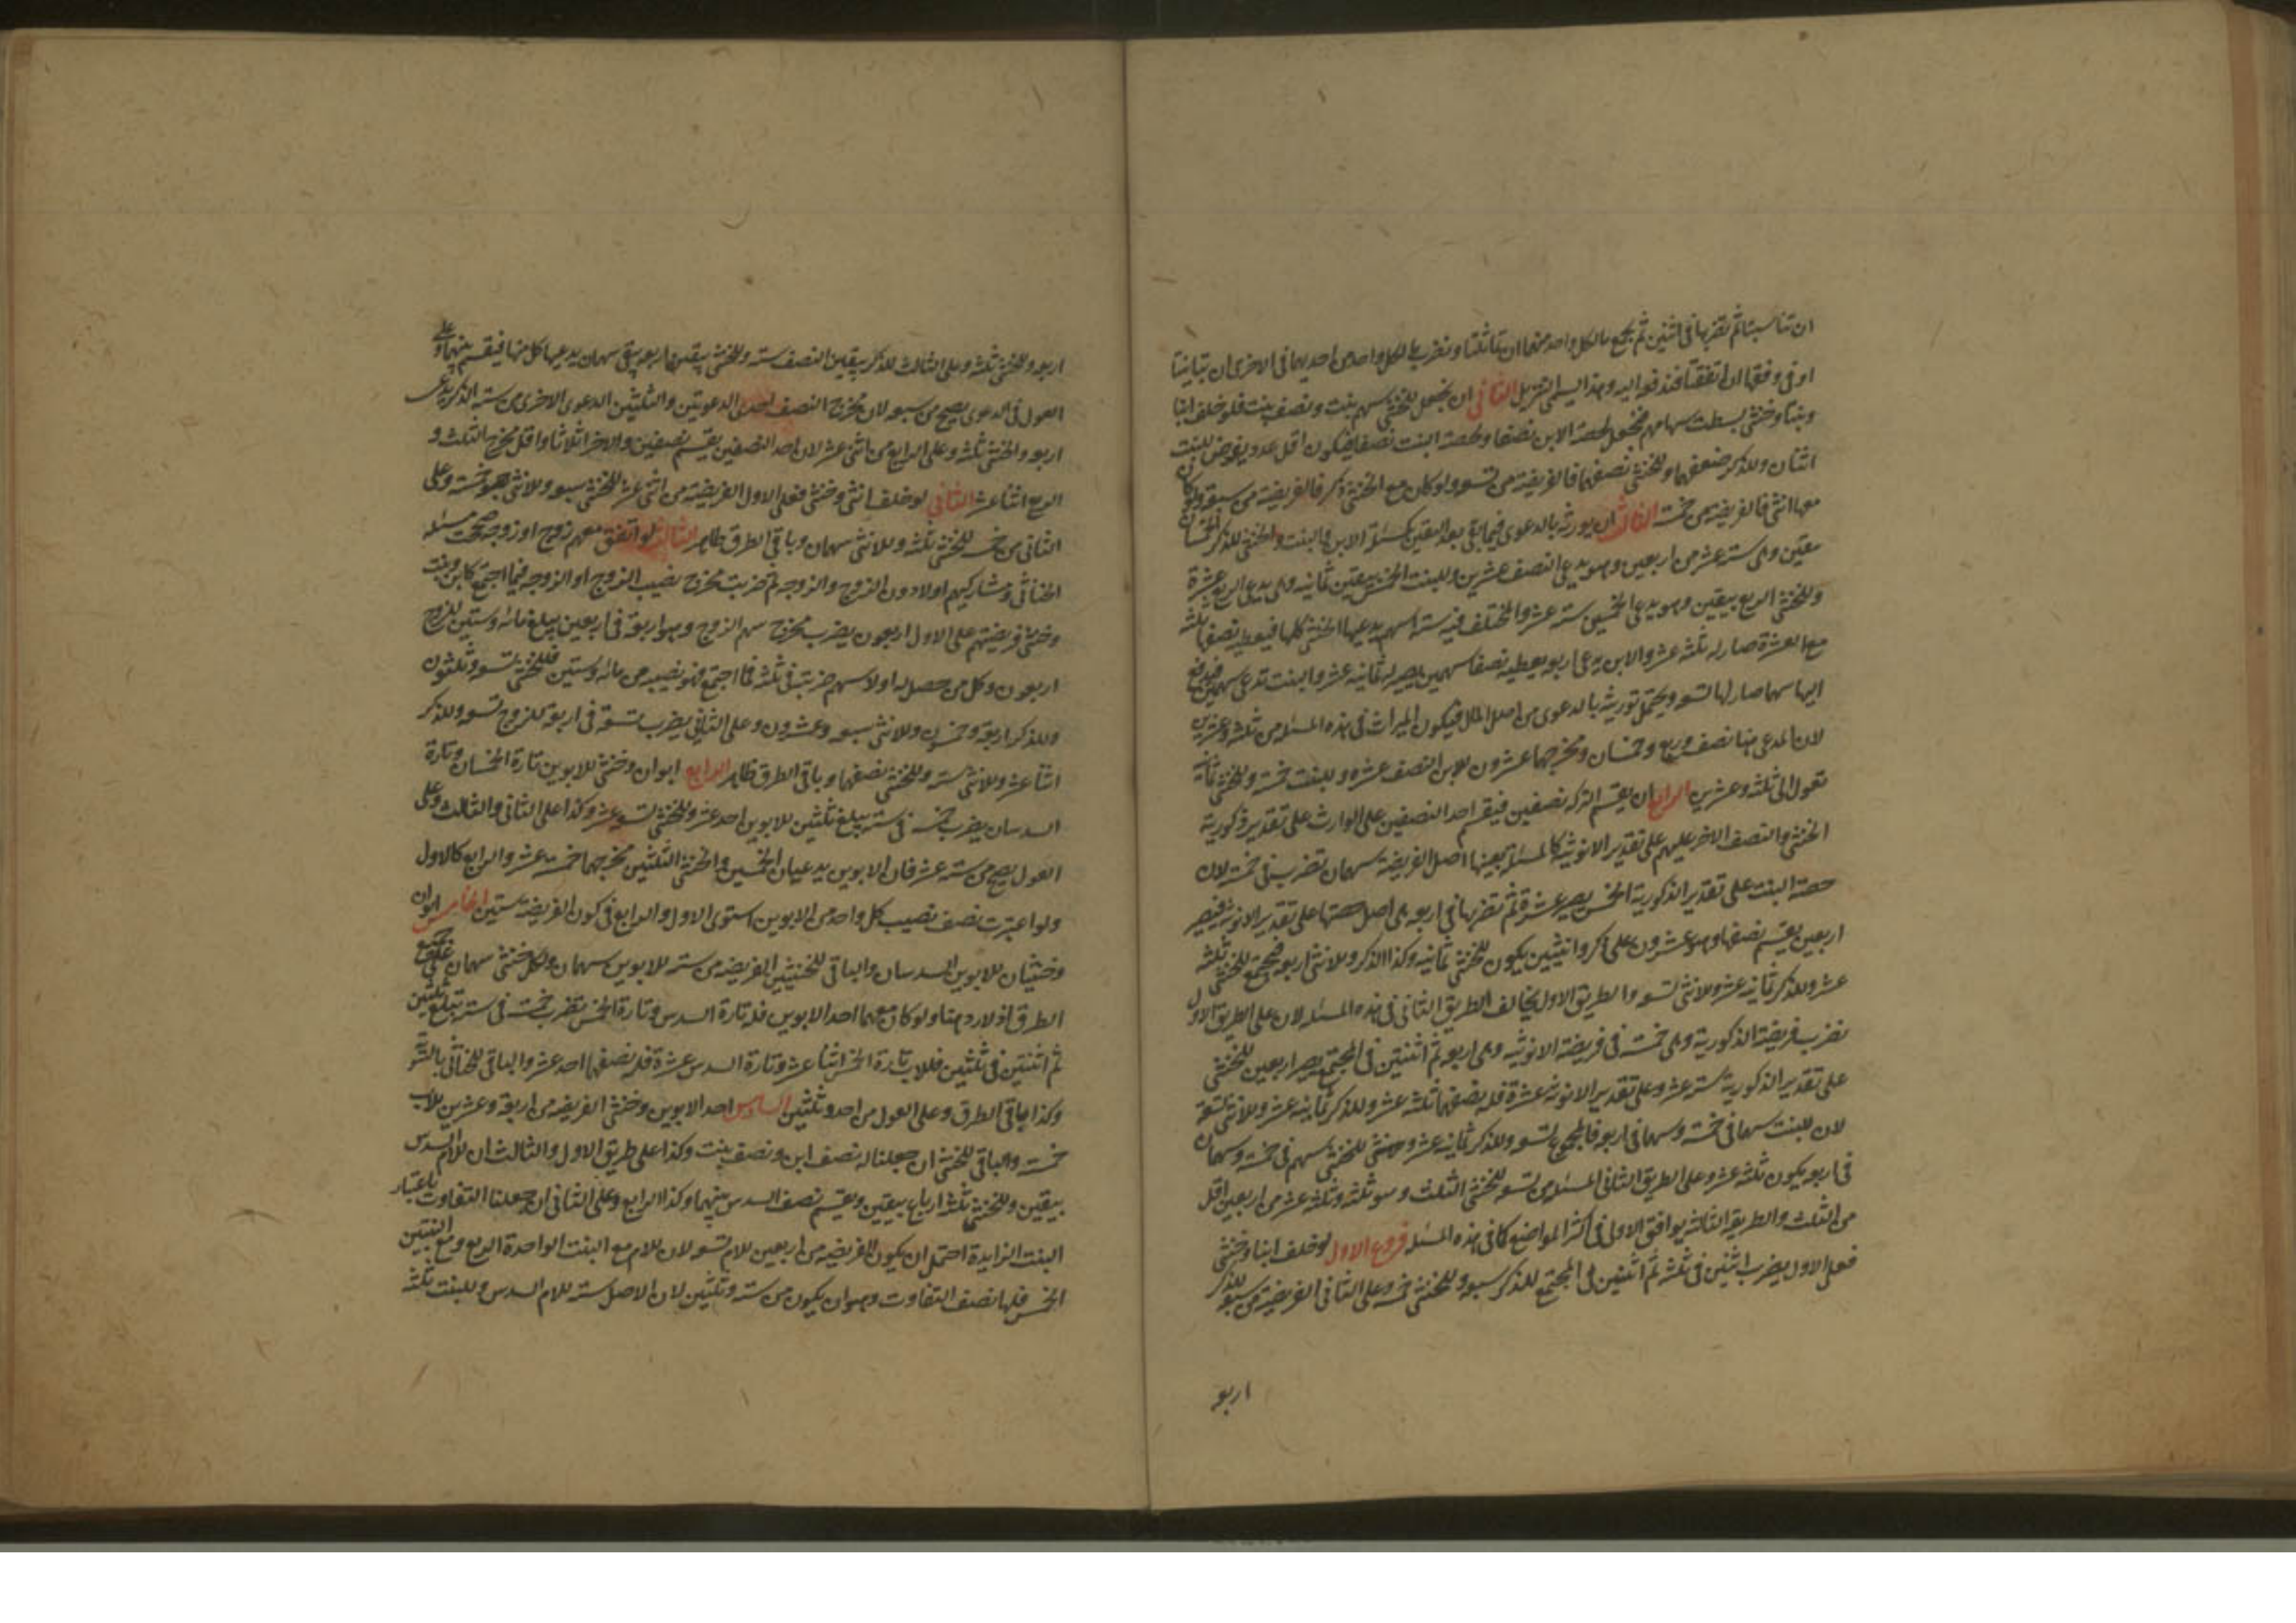 ان تناسبتا ثم تضربها في اثنين ثم تجمع ما لكل واحد منهما ان تماثلتا وتضرب ما لكل واحد من احديهما في الاخرى ان تباينتا
او في وفقها ان اتفقتا فتدفع اليه وهذا ايسمى التنزيل الثاني ان نجعل للخنثى سهم بنت ونصف بنت فلو خلف ابنا
وبنتا وخنثى بسطت سهامهم فتجعل لحصة الابن نصفا ولحصة البنت نصفا فيكون اقل عدد يفرض للبنت
اثنان وللذكر ضعفهما وللخنثى نصفهما فالفريضة من تسعه ولو كان مع الخنثى ذكر فالفريضة من سبعة ولو كان
معها انثى فالفريضة من خمسة الثالث ان يورث بالدعوى فيما بقي بعد اليقين كمسئلة الابن والبنت والخنثى للذكر الخمسان
بيقين وهي ستة عشر من اربعين وهو يدعي النصف عشرين وللبنت الخمس بيقين ثمانيه وهي يدعي الربع عشرة
وللخنثى الربع بيقين وهو يدعي الخمسين ستة عشر والمختلف فيه ستة اسهم يدعيها الخنثى كلها فيعطيه نصفها ثلثه
مع العشرة صار له ثلثه عشر والابن يدعي اربعه يعطيه نصفها سهمين يصير له ثمانيه عشر والبنت تدعي سهمين فيدفع
اليها سهما صار لها تسعه ويحتمل توريثه بالدعوى من اصل المال فيكون الميراث في هذه المسئله من ثلثه وعشرين
لان المدعي هنا نصف وربع وخمسان ومخرجها عشرون للابن النصف عشره وللبنت خمسة وللخنثى ثمانية
تعول الى ثلثه وعشرين الرابع ان يقسم التركه نصفين فيقسم احد النصفين على الوارث على تقدير ذكورية
الخنثى والنصف الاخر عليهم على تقدير الانوثيه كالمسئله بعينها اصل الفريضة سهمان تضرب في خمسة لان
حصة البنت على تقدير الذكورية الخمس يصير عشرة ثم تضربها في اربعه هي اصل حصتها على تقدير الانوثيه فيصير
اربعين يقسم نصفها وهو عشرون على ذكر وانثيين يكون للخنثى ثمانيه وكذا الذكر وللانثى اربعه فيجتمع للخنثى ثلثه
عشر وللذكر ثمانيه عشر وللانثى تسعه والطريق الاول يخالف الطريق الثاني في هذه المسئله لان على الطريق الاول
نضرب فريضة الذكورية وهي خمسة في فريضة الانوثيه وهي اربعه ثم اثنتين في المجتمع يصير اربعين للخنثى
على تقدير الذكورية ستة عشر وعلى تقدير الانوثيه عشرة فله نصفهما ثلثه عشر وللذكر ثمانيه عشر وللانثى تسعة
لان للبنت سهما في خمسة وسهما في اربعه فالمجموع تسعه وللذكر ثمانيه عشر وللخنثى سهم في خمسة وسهمان
في اربعه يكون ثلثه عشر وعلى الطريق الثاني المسئله من تسعه للخنثى الثلث وهو ثلثه وثلثه عشر من اربعين اقل
من الثلث والطريقه الثالثه يوافق الاولى في اكثر المواضع كما في هذه المسئله فروع الاول لو خلف ابنا وخنثى
فعلى الاول يضرب اثنين في ثلثه ثم اثنين في المجتمع للذكر سبعه وللخنثى خمسه وعلى الثاني الفريضة من سبعه للذكر
اربعه
اربعه وللخنثى ثلثه وعلى الثالث للذكر بيقين النصف ستة وللخنثى بيقين اربعه يبقى سهمان يدعيها كل منهما فيقسم بينهما وعلى
العول في الدعوى يصح من سبعه لان مخرج النصف احدى الدعوتين والثلثين الدعوى الاخرى من ستة الذكر يدعي
اربعه والخنثى ثلثه وعلى الرابع من اثني عشر لان احد النصفين يقسم نصفين والاخر اثلاثا واقل مخرج الثلث و
الربع اثنا عشر الثاني لو خلف انثى وخنثى فعلى الاول الفريضة من اثنى عشر للخنثى سبعه وللانثى خمسة وعلى
الثاني من خمس للخنثى ثلثه وللانثى سهمان وباقي الطرق ظاهر الثالث لو اتفق معهم زوج او زوجه صححت مسئله
الخناثى ومشاركيهم اولا دون الزوج والزوجه ثم ضربت مخرج نصيب الزوج او الزوجه فيما اجتمع كابن وبنت
وخنثى فريضتهم على الاول اربعون يضرب مخرج سهم الزوج وهو اربعة في اربعين يبلغ مائه وستين للزوج
اربعون وكل من حصل له اولا سهم ضربته في ثلثه فما اجتمع فهو نصيبه من مائه وستين فللخنثى تسعه وثلثون
وللذكر اربعة وخمسون وللانثى سبعه وعشرون وعلى الثاني يضرب تسعة في اربعة للزوج تسعه وللذكر
اثنا عشر وللانثى ستة وللخنثى نصفهما وباقي الطرق ظاهر الرابع ابوان وخنثى للابوين تارة الخمسان وتارة
السدسان يضرب خمسه في ستة يبلغ ثلثين للابوين احد عشر وللخنثى تسعه عشر وكذا على الثاني والثالث وعلى
العول يصح من ستة عشر فان الابوين يدعيان الخمسين والخنثى الثلثين مخرجهما خمسة عشر والرابع كالاول
ولو اعتبرت نصف نصيب كل واحد من الابوين استوى الاول والرابع في كون الفريضة ستين الخامس ابوان
وخنثيان للابوين السدسان والباقي للخنثيين الفريضه من ستة للابوين سهمان ولكل خنثى سهمان على جميع
الطرق اذ لا رد هنا ولو كان معهما احد الابوين فله تارة السدس وتارة الخمس تضرب خمسة في ستة تبلغ ثلثين
ثم اثنتين في ثلثين فللاب تارة الخمس اثنا عشر وتارة السدس عشرة فله نصفهما احد عشر والباقي للخناثى بالسويه
وكذا باقي الطرق وعلى العول من احد وثلثين السادس احد الابوين وخنثى الفريضه من اربعة وعشرين للاب
خمسة والباقي للخنثى ان جعلنا له نصف ابن ونصف بنت وكذا على طريق الاول والثالث ان للام السدس
بيقين وللخنثى ثلثة ارباع بيقين ويقسم نصف السدس بينهما وكذا الرابع وعلى الثاني ان جعلنا التفاوت باعتبار
البنت الزايدة احتمل ان يكون الفريضه من اربعين للام تسعه لان للام مع البنت الواحدة الربع ومع البنتين
الخمس فلها نصف التفاوت وهو ان يكون من ستة وثلثين لان الاصل ستة للام السدس وللبنت ثلثه